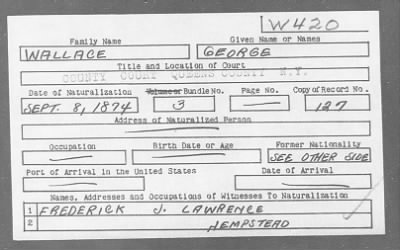 W420
Family Name Given Name or Names
WALLACE GEORGE
Title and Location of Court
COUNTY COURT QUEENS COUNTY N.Y.
Date of Naturalization Volume or Bundle No. Page No. Copy of Record No.
SEPT. 8, 1874 3 — 127
Address of Naturalized Person
Occupation Birth Date or Age Former Nationality
SEE OTHER SIDE
Port of Arrival in the United States Date of Arrival
Names, Addresses and Occupations of Witnesses To Naturalization
1 FREDERICK J. LAWRENCE
2 HEMPSTEAD